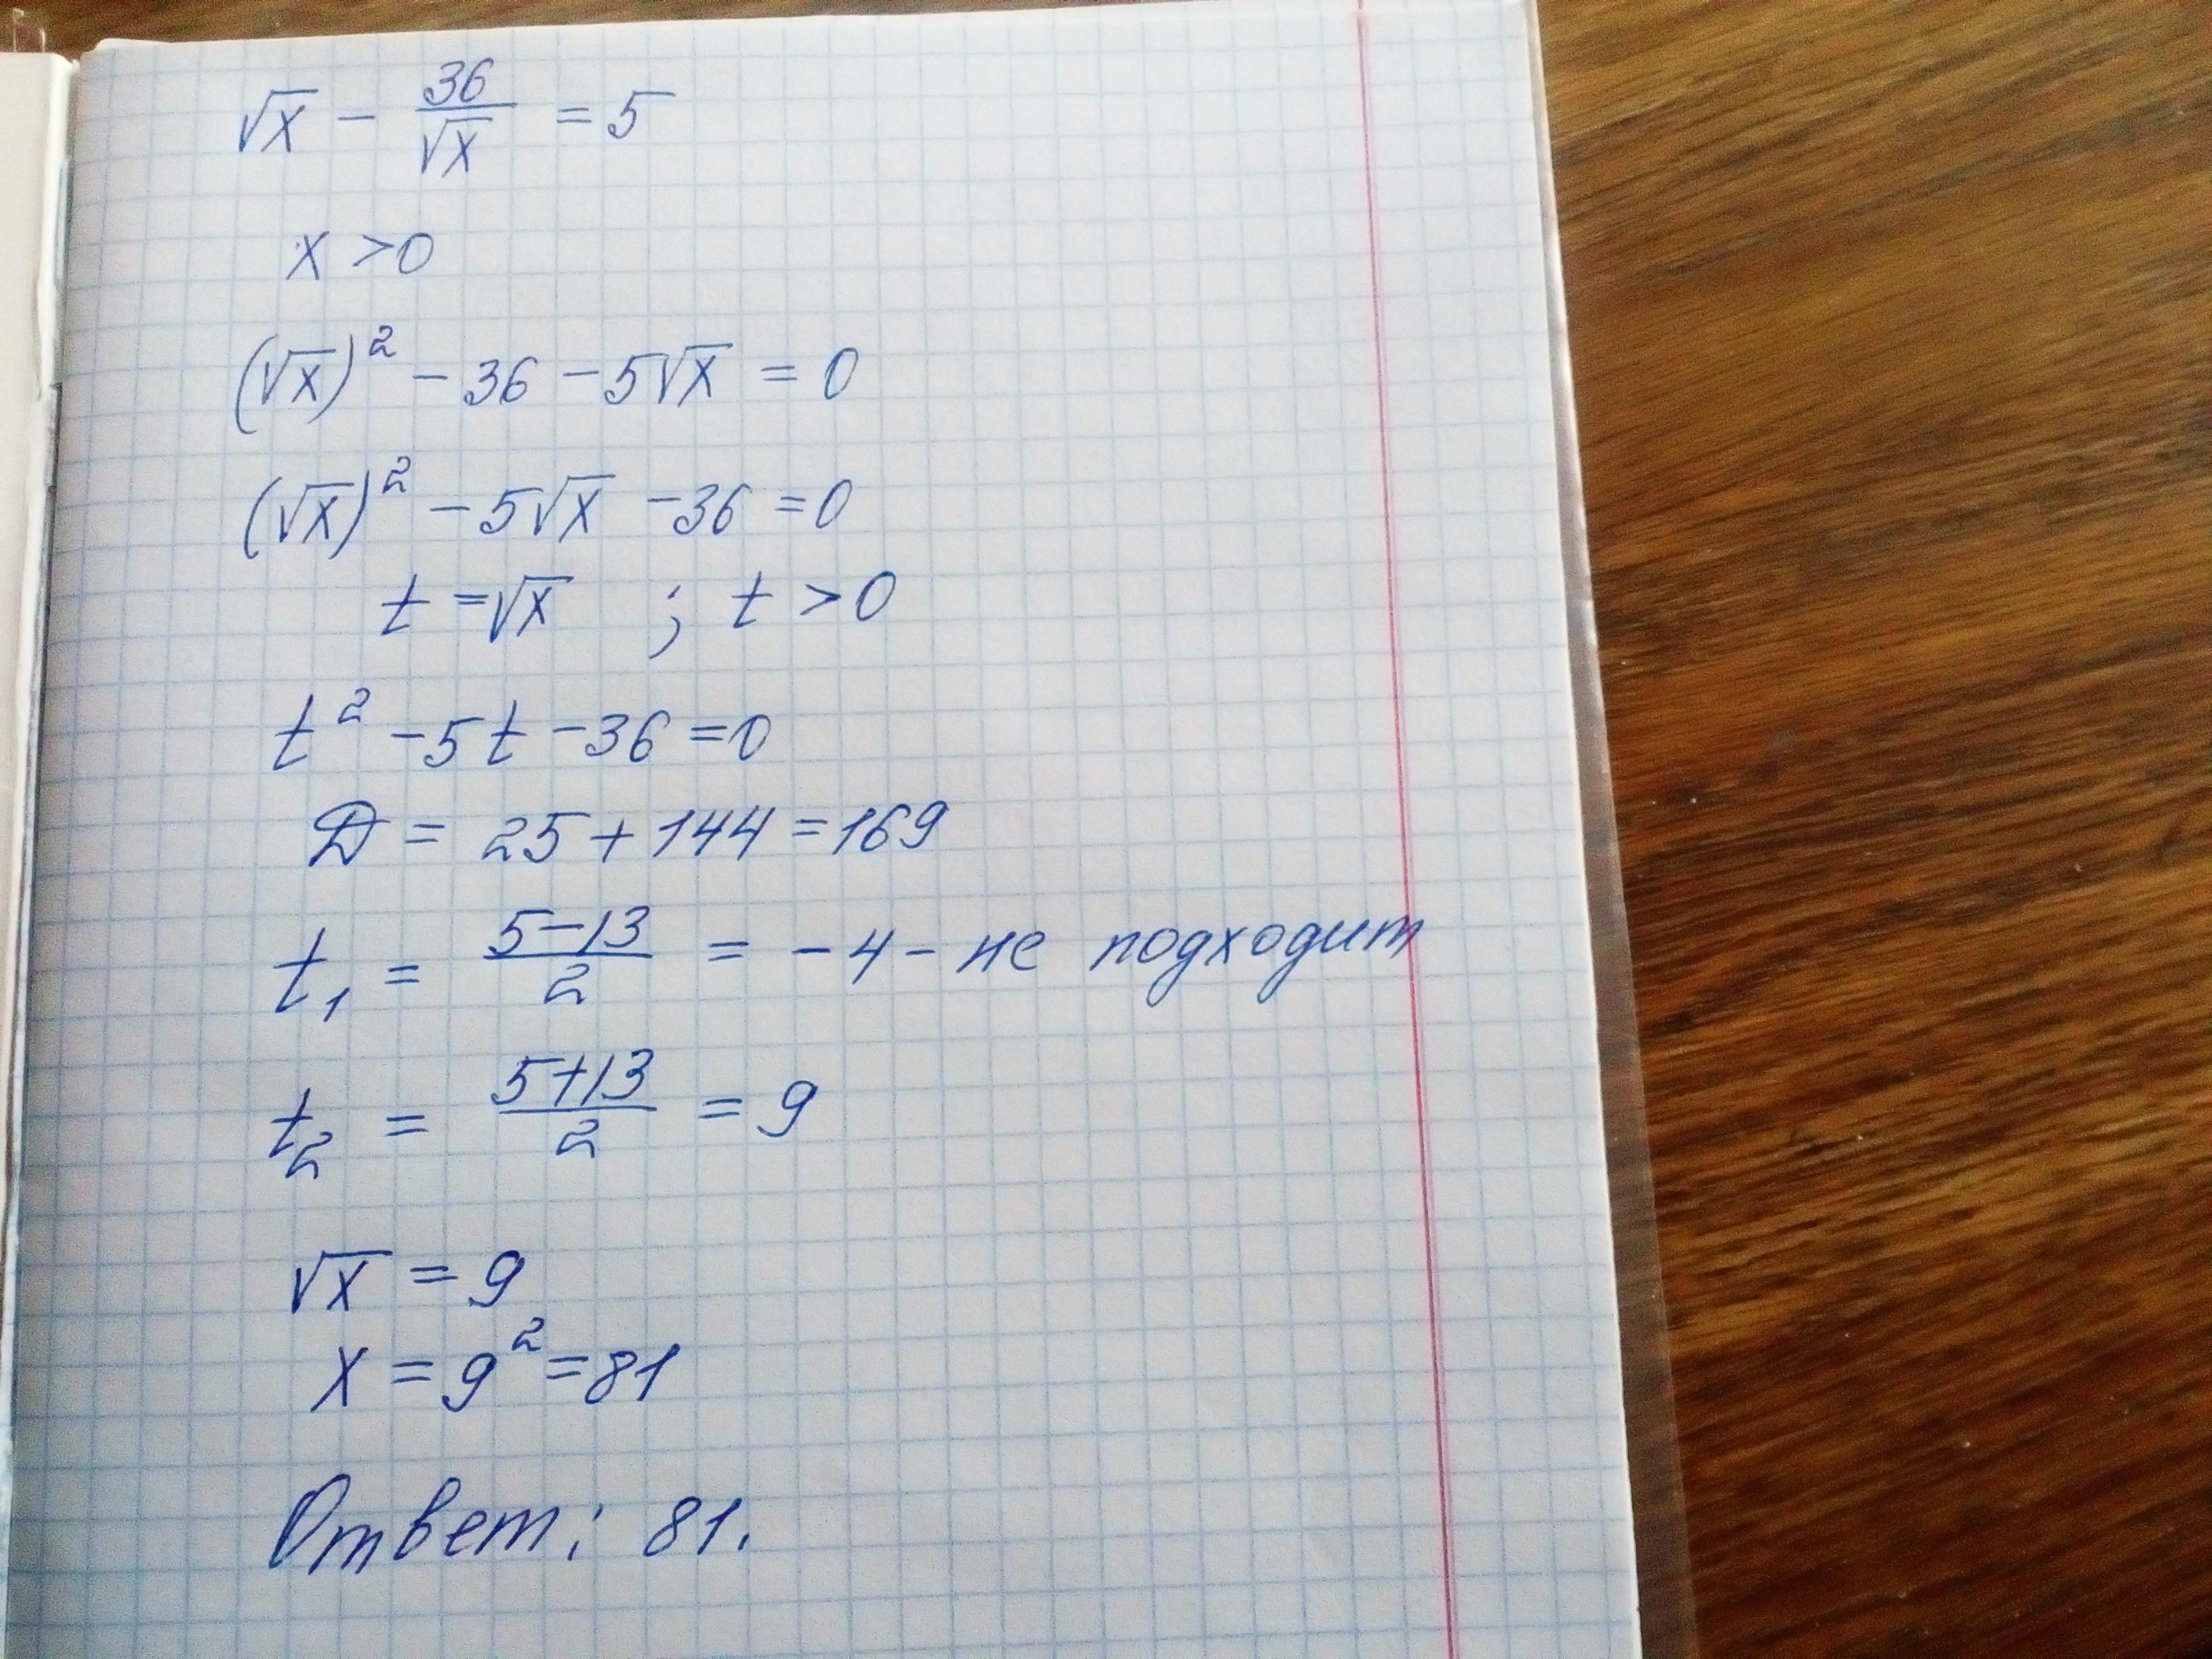 √x − 36/√x = 5
x > 0
(√x)² − 36 − 5√x = 0
(√x)² − 5√x − 36 = 0
t = √x ; t > 0
t² − 5t − 36 = 0
D = 25 + 144 = 169
t₁ = (5−13)/2 = −4 − не подходит
t₂ = (5+13)/2 = 9
√x = 9
x = 9² = 81
Ответ: 81.